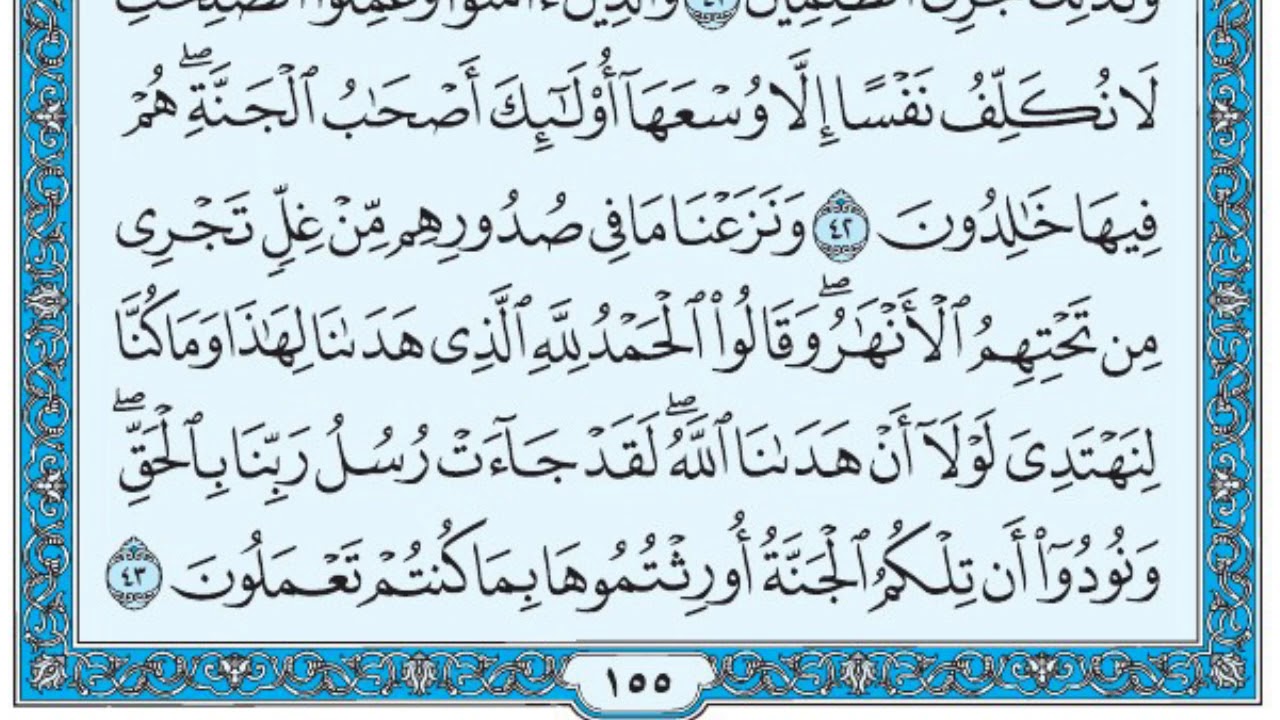 وَكَذَٰلِكَ نَجْزِى ٱلظَّٰلِمِينَ ٤١ وَٱلَّذِينَ ءَامَنُوا۟ وَعَمِلُوا۟ ٱلصَّٰلِحَٰتِ
لَا نُكَلِّفُ نَفْسًا إِلَّا وُسْعَهَآ أُو۟لَٰٓئِكَ أَصْحَٰبُ ٱلْجَنَّةِ ۖ هُمْ
فِيهَا خَٰلِدُونَ ٤٢ وَنَزَعْنَا مَا فِى صُدُورِهِم مِّنْ غِلٍّ تَجْرِى
مِن تَحْتِهِمُ ٱلْأَنْهَٰرُ ۖ وَقَالُوا۟ ٱلْحَمْدُ لِلَّهِ ٱلَّذِى هَدَىٰنَا لِهَٰذَا وَمَا كُنَّا
لِنَهْتَدِىَ لَوْلَآ أَنْ هَدَىٰنَا ٱللَّهُ ۖ لَقَدْ جَآءَتْ رُسُلُ رَبِّنَا بِٱلْحَقِّ ۖ
وَنُودُوٓا۟ أَن تِلْكُمُ ٱلْجَنَّةُ أُورِثْتُمُوهَا بِمَا كُنتُمْ تَعْمَلُونَ ٤٣
١٥٥